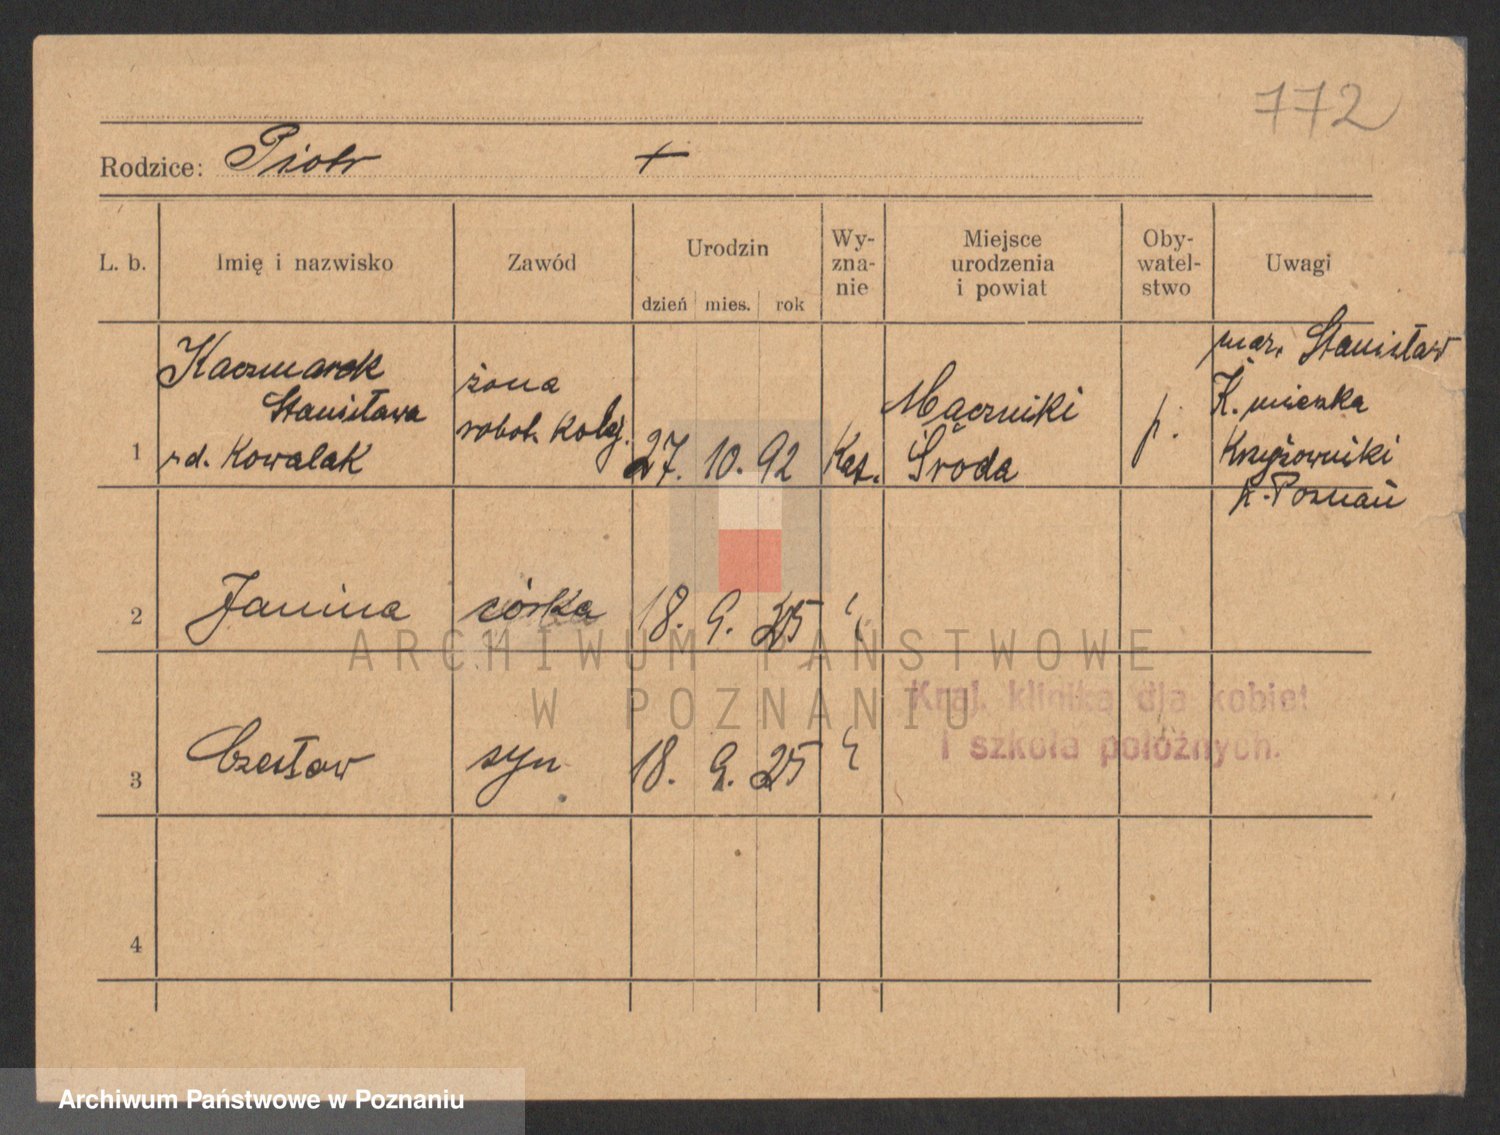 772
Rodzice: Piotr +
L. b.
Imię i nazwisko
Zawód
Urodzin
dzień mies. rok
Wy-
zna-
nie
Miejsce
urodzenia
i powiat
Oby-
watel-
stwo
Uwagi
1
Kaczmarek
Stanisława
rd. Kowalak
żona
robot. kolej.
27. 10. 92
Kat.
Mączniki
Środa
p.
mąż Stanisław
K. mieszka
Krzyżowniki
p. Poznań
2
Janina
córka
18. 9. 25
"
3
Czesław
syn
18. 9. 25
"
Kraj. klinika dla kobiet
i szkoła położnych.
4
ARCHIWUM PAŃSTWOWE
W POZNANIU
Archiwum Państwowe w Poznaniu